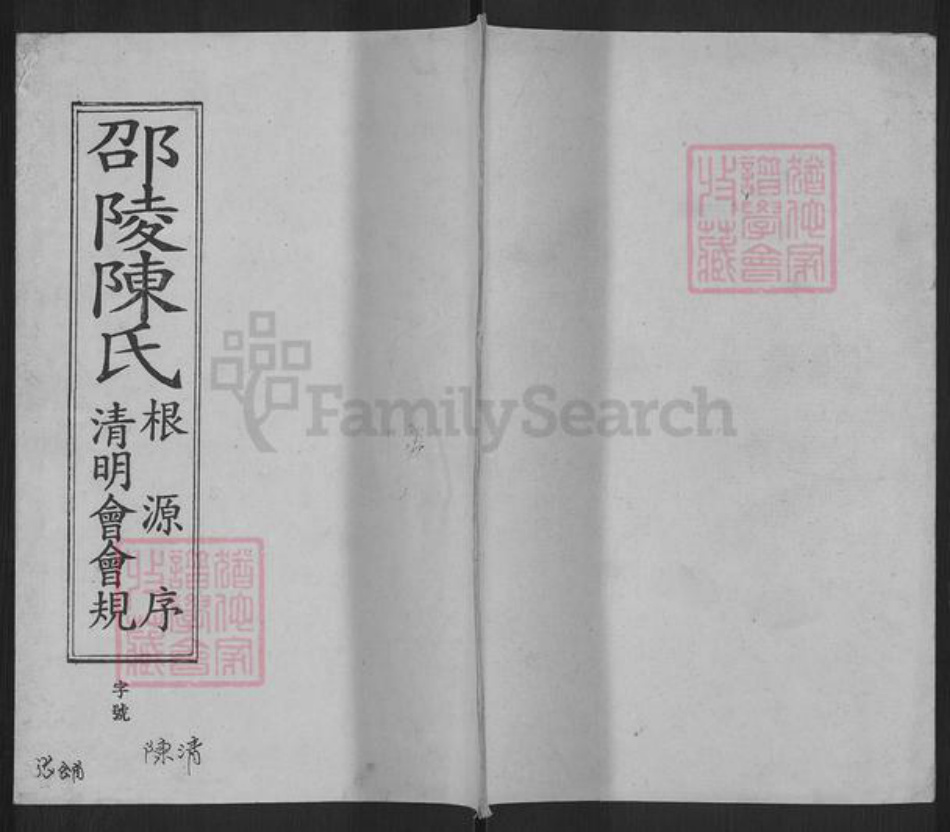 邵陵陳氏
根源序
清明會會規
字號
陳清
猶他家
譜學會
收藏
猶他家
譜學會
收藏
FamilySearch